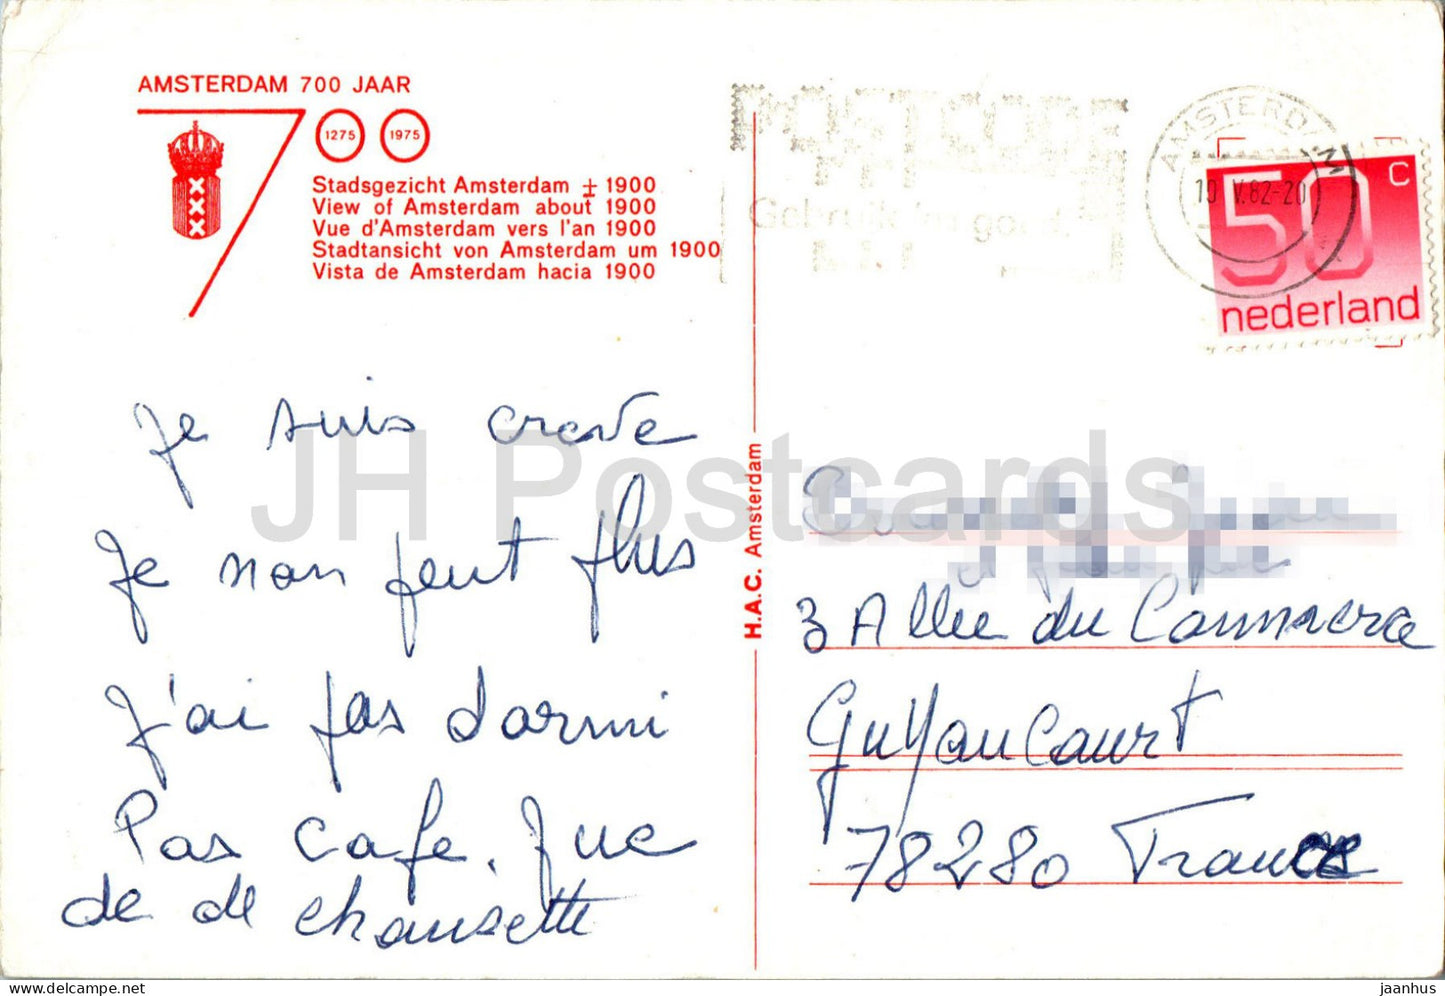 AMSTERDAM 700 JAAR
1275 1975
Stadsgezicht Amsterdam ± 1900
View of Amsterdam about 1900
Vue d'Amsterdam vers l'an 1900
Stadtansicht von Amsterdam um 1900
Vista de Amsterdam hacia 1900
POSTCODE
Gebruik 'm goed
AMSTERDAM
19 V.82-20
50 c
nederland
Je suis creve
Je non peut plus
J'ai pas dormi
Pas cafe. que
de de chausette
H.A.C. Amsterdam
3 Allee du Commerce
Guyancourt
78280 France
JH Postcards
jaanhus